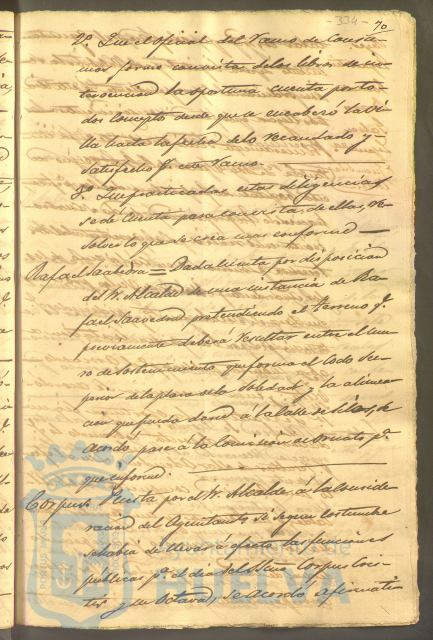 - 334 - 70
2º. Que el oficial del Ramo de Consu-
mos forme con vista de los libros de in-
tervencion la oportuna cuenta por to-
dos conceptos desde que se encabezó la Vi-
lla hasta la fecha de lo recaudado y
satisfecho pr. este Ramo.
3º. Que practicadas estas diligencias
se dé cuenta para con vista de ellas, re-
solver lo que se crea mas conforme
Rafael Saabedra = Dada cuenta por disposicion
del Sr. Alcalde de una instancia de Ra-
fael Saavedra pretendiendo el terreno q.
previamente deberá resultar entre el mu-
ro de sostenimiento que forma el lado Su-
perior de la plaza de la Soledad y la alinea-
cion que pueda darse á la Calle de Silos, se
acordó pase á la Comision de Ornato pª.
que informe.
Corpus = Puesta por el Sr. Alcalde á la conside-
racion del Ayuntamto. si segun costumbre
se habia de llevar á efecto las funciones
públicas pª. el dia del Smo. Corpus Cris-
ti y su Octava, se acordó afirmati-
Ayuntamiento de
HUELVA